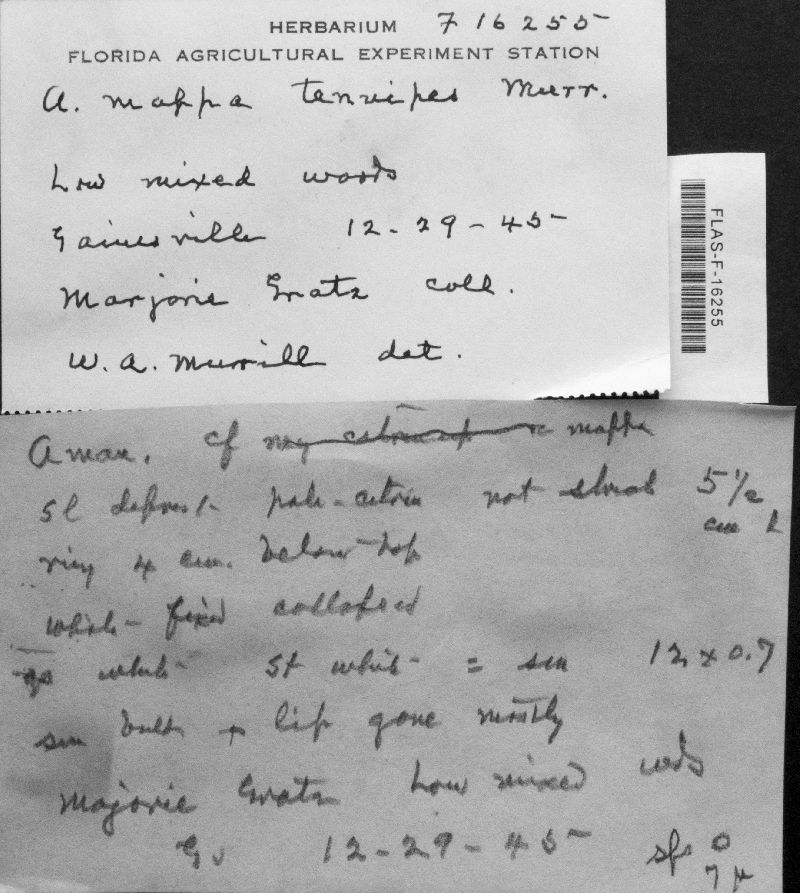 HERBARIUM F 16255
FLORIDA AGRICULTURAL EXPERIMENT STATION
A. mappa tenuipes Murr.
Low mixed woods
Gainesville 12-29-45
Marjorie Gratz coll.
W. A. Murrill det.
FLAS-F-16255
Aman. cf mappa
sl depres- pale-citrin not striat 5 1/2
cm
ring 4 cm. below top
white- fixed collapsed
gs white- St white- = sm 12 x 0.7
sm bulb + lip gone mostly
Majorie Gratz Low mixed wds
Gv 12-29-45 sps O
7 µ